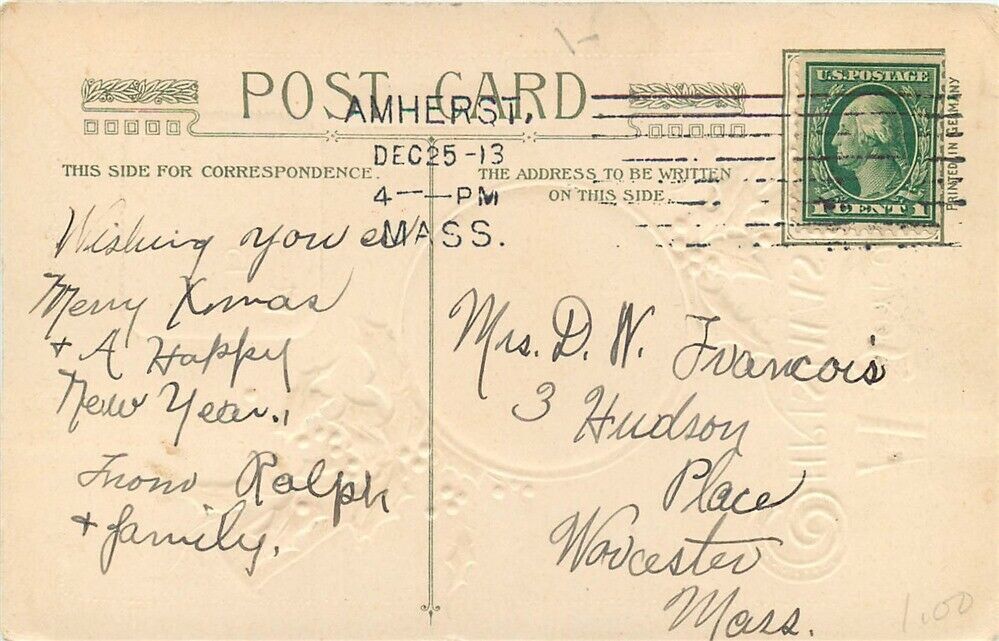 POST CARD
AMHERST,
DEC 25-13
4 — PM
MASS.
THIS SIDE FOR CORRESPONDENCE.
THE ADDRESS TO BE WRITTEN
ON THIS SIDE
U.S. POSTAGE
1 CENT 1
PRINTED IN GERMANY
Wishing you all
Merry Xmas
+ A Happy
New Year.
From Ralph
+ family.
Mrs. D. W. Francois
3 Hudson
Place
Worcester
Mass.
1.00